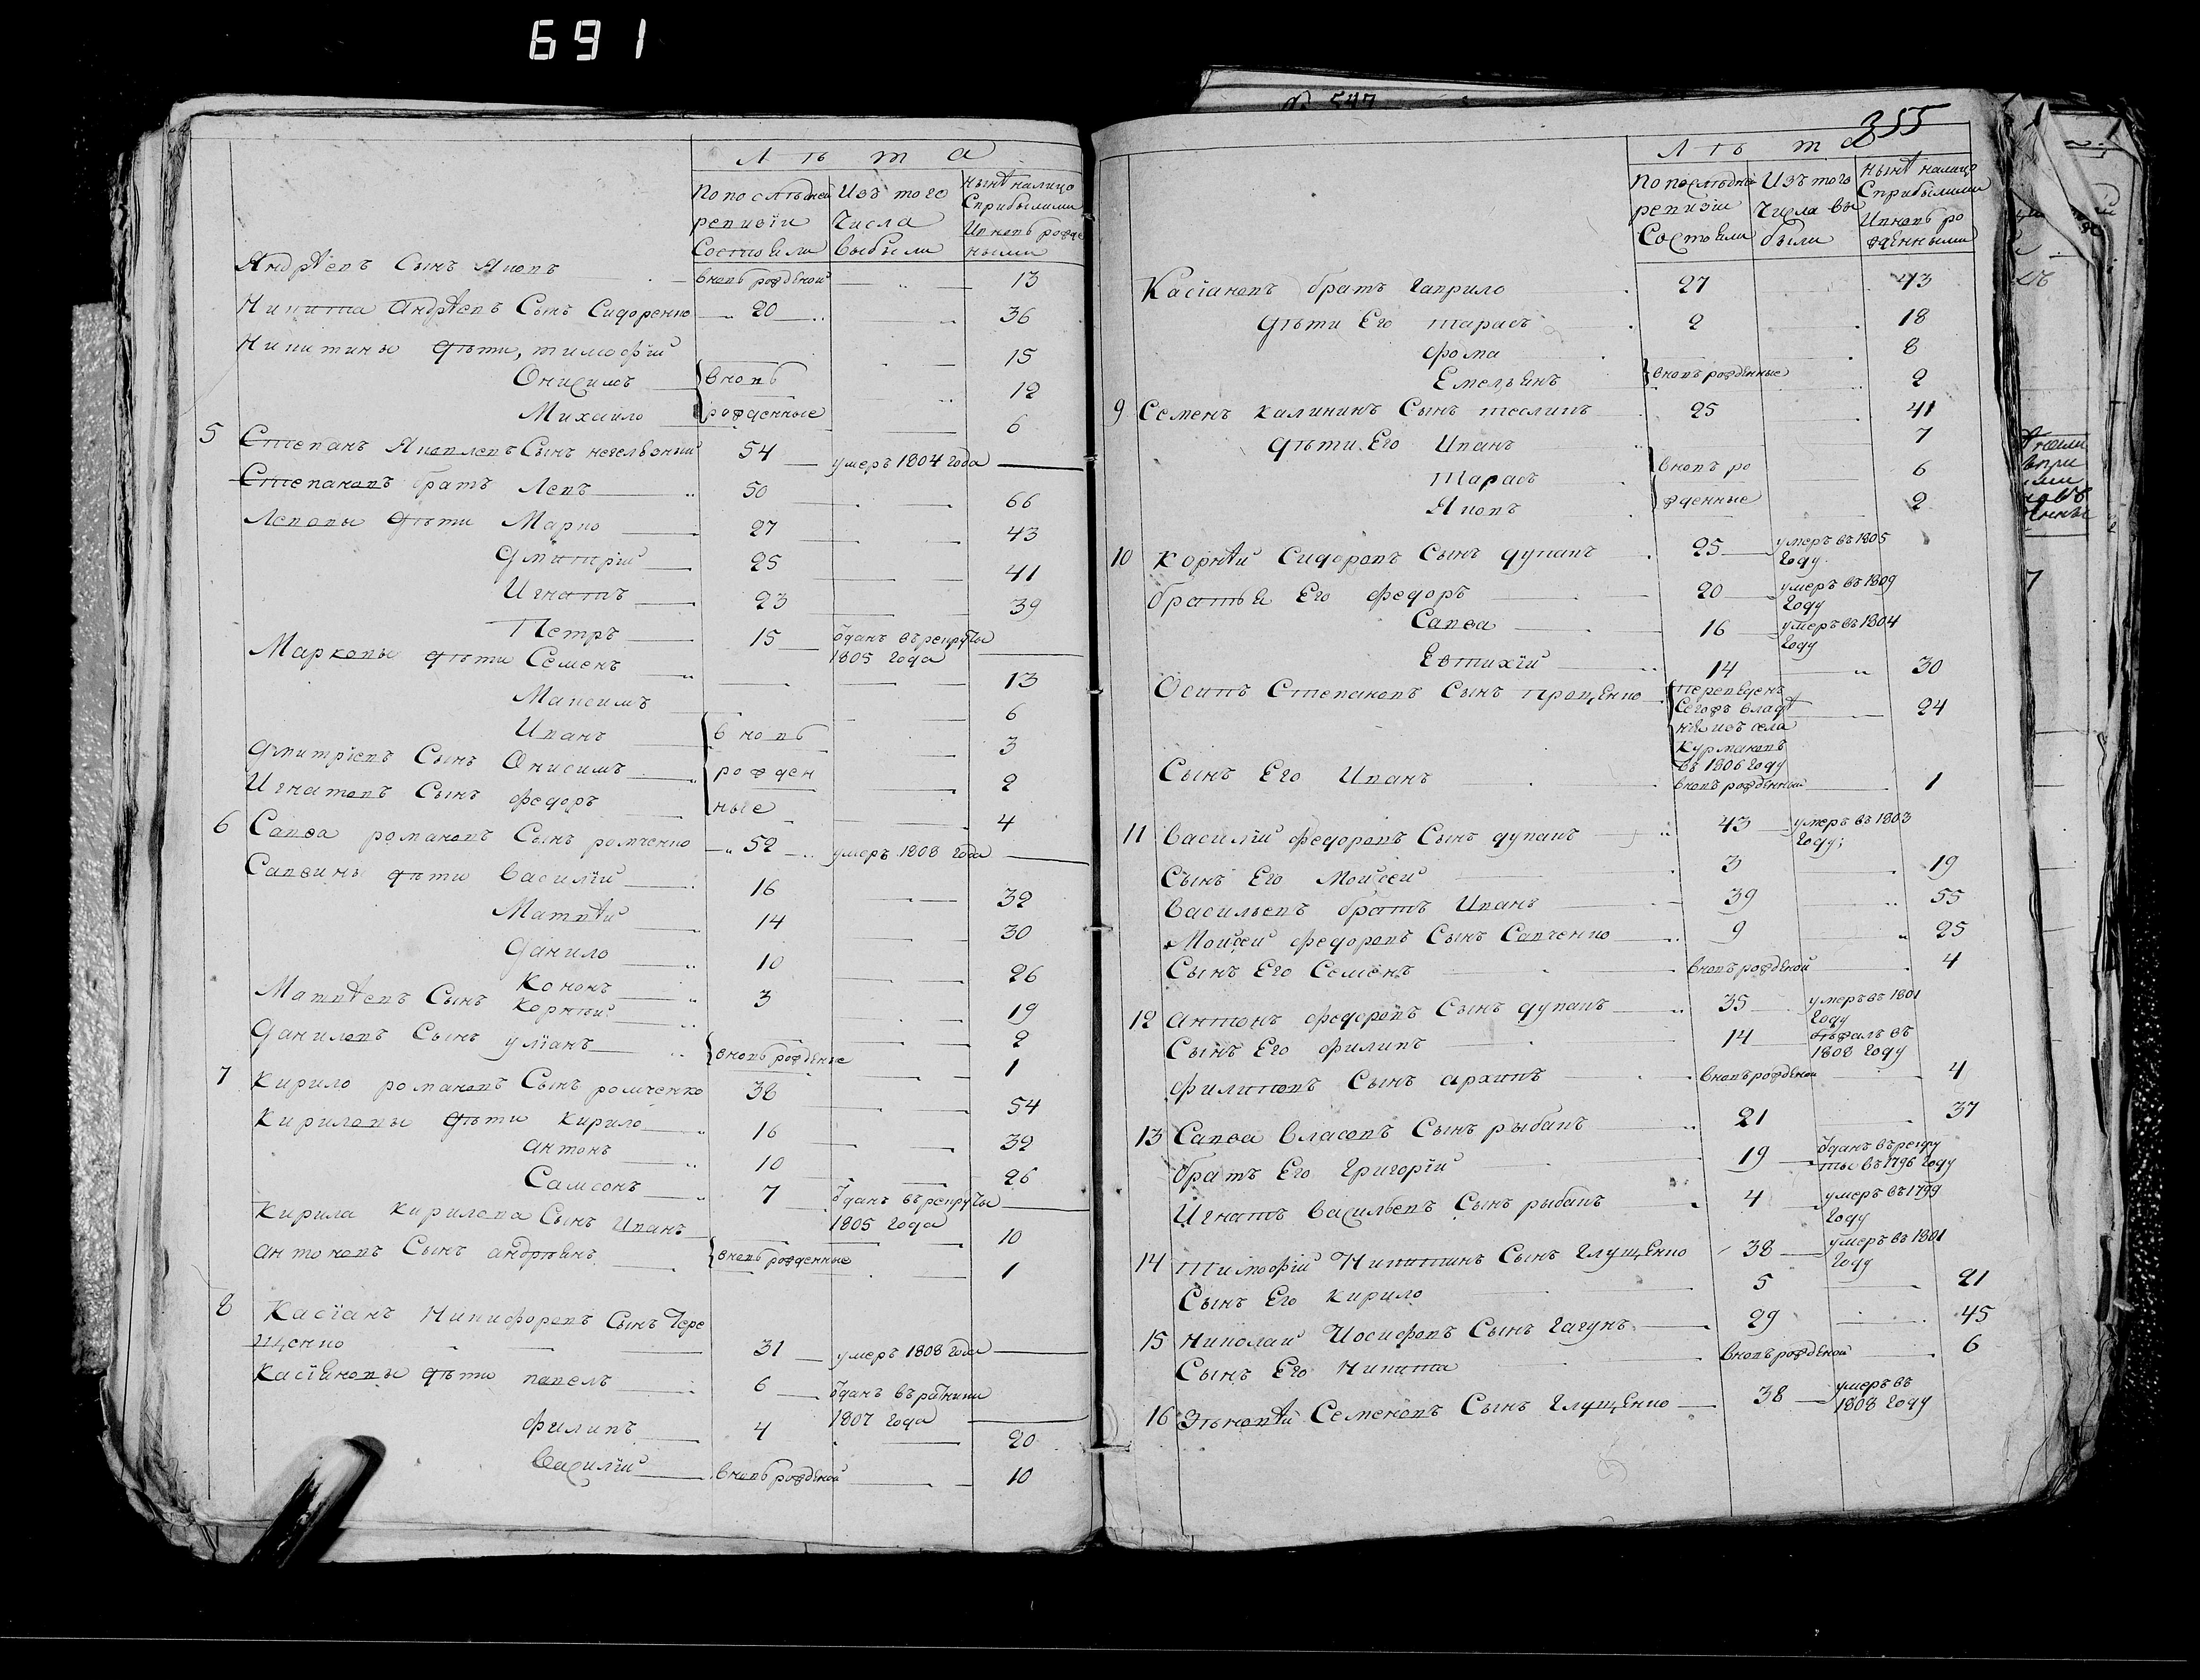 691
№ 547
355
Лѣта
По последней Изъ того Нынѣ налицо
ревизіи Числа Сприбылими
Состояли выбыли Ивновь рожде
ными
Андрѣевъ Сынъ Яковъ вновь рожденой 13
Никита Андрѣевъ Сынъ Сидоренко 20 36
Никитины дѣти, тимофѣй 15
Онисимъ вновь 12
Михаило рожденные 6
5 Степанъ Яковлевъ Сынъ 54 умеръ 1804 года
Степановъ братъ Левъ 50 66
Левовы дѣти Марко 27 43
Дмитрій 25 41
Игнатъ 23 39
Петръ 15 ѿданъ врекруты
1805 года
Марковы дѣти Семенъ 13
Максимъ 6
Иванъ вновь 3
Дмитріевъ Сынъ Онисимъ рожден 2
Игнатовъ Сынъ федоръ ные 4
6 Савва романовъ Сынъ ромченко 52 умеръ 1808 года
Саввины дѣти Василій 16 32
Матвѣй 14 30
Данило 10 26
Кононъ 3 19
Матвѣевъ Сынъ Корнѣй 2
Даниловъ Сынъ уліанъ вновь рожденые 1
7 Кирило романовъ Сынъ ромченко 38 54
Кириловы дѣти Кирило 16 32
антонъ 10 26
Самсонъ 7 ѿданъ врекруты
1805 года
Кирила Кирилова Сынъ Иванъ 10
антоновъ Сынъ андрѣянъ вновь рожденные 1
8 Касіанъ Никифоровъ Сынъ Чере
щенко 31 умеръ 1808 года
Касіяновы дѣти павелъ 6 ѿданъ вратники
1807 года
филипъ 4 20
Василій вновь рожденой 10
Лѣта
По последне Изъ того Нынѣ налицо
ревизіи Числа вы Сприбылими
Состояли были Ивновь ро
жденными
Касіановъ братъ гаврило 27 43
дѣти Его тарасъ 2 18
фома 8
Емельянъ вновь рожденные 2
9 Семенъ Калининъ Сынъ теслинъ 25 41
дѣти Его Иванъ 7
тарасъ вновь ро 6
Яковъ жденные 2
10 Корнѣй Сидоровъ Сынъ дупакъ 25 умеръ въ 1805
году.
братья Его федоръ 20 умеръ въ 1809
году
Савва 16 умеръ въ 1804
году
Евтихій 14 30
Осипъ Степановъ Сынъ проценко переведенъ
Сегожъ владѣ 24
нія изъ села
Курманова
въ 1806 году
Сынъ Его Иванъ вновь рожденной 1
11 Василій федоровъ Сынъ дупакъ 43 умеръ въ 1803
году;
Сынъ Его Мойсей 3 19
Васильевъ братъ Иванъ 39 55
Мойсей федоровъ Сынъ Савченко 9 25
Сынъ Его Семенъ вновь рожденой 4
12 антонъ федоровъ Сынъ дупакъ 35 умеръ въ 1801
году
Сынъ Его филипъ 14 бѣжалъ въ
1808 году
филиповъ Сынъ архипъ вновь рожденой 4
13 Савва Власовъ Сынъ рыбакъ 21 37
братъ Его Григорій 19 ѿданъ врекру
ты въ 1796 году
Игнатъ Васильевъ Сынъ рыбакъ 4 умеръ въ 1799
году
14 Тимофій Никитинъ Сынъ Глущенко 38 умеръ въ 1801
году
Сынъ Его Кирило 5 21
15 Николай Иосифовъ Сынъ гагунъ 29 45
Сынъ Его Никита вновь рожденой 6
16 Зѣновѣй Семеновъ Сынъ Глущенко 38 умеръ въ
1808 году